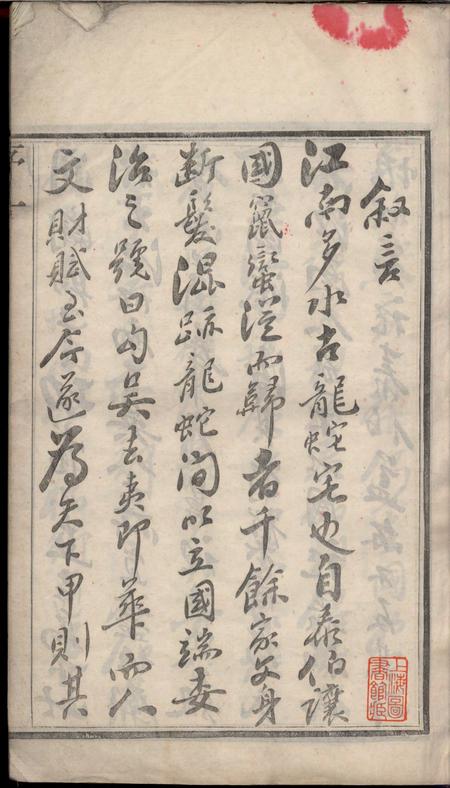 叙言
江南多水古龍蛇宅也自泰伯讓
國竄蠻從而歸者千餘家文身
断髮混跡龍蛇間以立國端委
治之號曰勾吳去夷即華而人
文財賦至今遂為天下甲則其
上海圖
書館藏